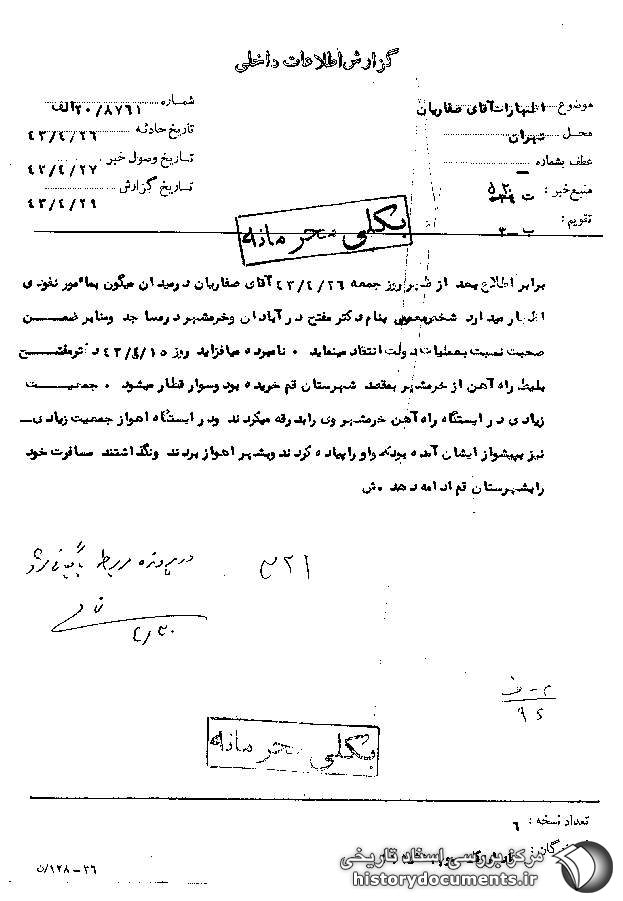 گزارش اطلاعات داخلی
موضوع اظهارات آقای صفاریان
شماره ۲۰/۸۷۶۱الف
محل تهران
تاریخ حادثه ۴۳/۴/۲۶
عطف بشماره –
تاریخ وصول خبر ۴۳/۴/۲۷
منبع خبر :
تاریخ گزارش ۴۳/۴/۲۹
تقویم : ب-۳
بکلی محرمانه
برابر اطلاع بعد از ظهر روز جمعه ۴۳/۴/۲۶ آقای صفاریان در میدان میگون بمأمور نفوذی
اظهار میدارد شخص بنام دکتر مفتح در آبادان و خرمشهر در مساجد و منابر ضمن
صحبت نسبت بعملیات دولت انتقاد مینماید . نامبرده میافزاید روز ۴۳/۴/۱۵ دکتر مفتح
بلیط راه آهن از خرمشهر بمقصد شهرستان قم خریده بود و سوار قطار میشود . جمعیت
زیادی در ایستگاه راه آهن خرمشهر وی را بدرقه میکردند و در ایستگاه اهواز جمعیت زیادی
نیز بپیشواز ایشان آمده بودند و او را پیاده کردند و بشهر اهواز بردند و نگذاشتند مسافرت خود
را بشهرستان قم ادامه دهد . ش
۳۲۱
در پرونده مربوط بایگانی شود
۴/۳۰
بکلی محرمانه
تعداد نسخه : ۶
گان :
۳۶-۱۲۸/ن
مرکز بررسی اسناد تاریخی
historydocuments.ir